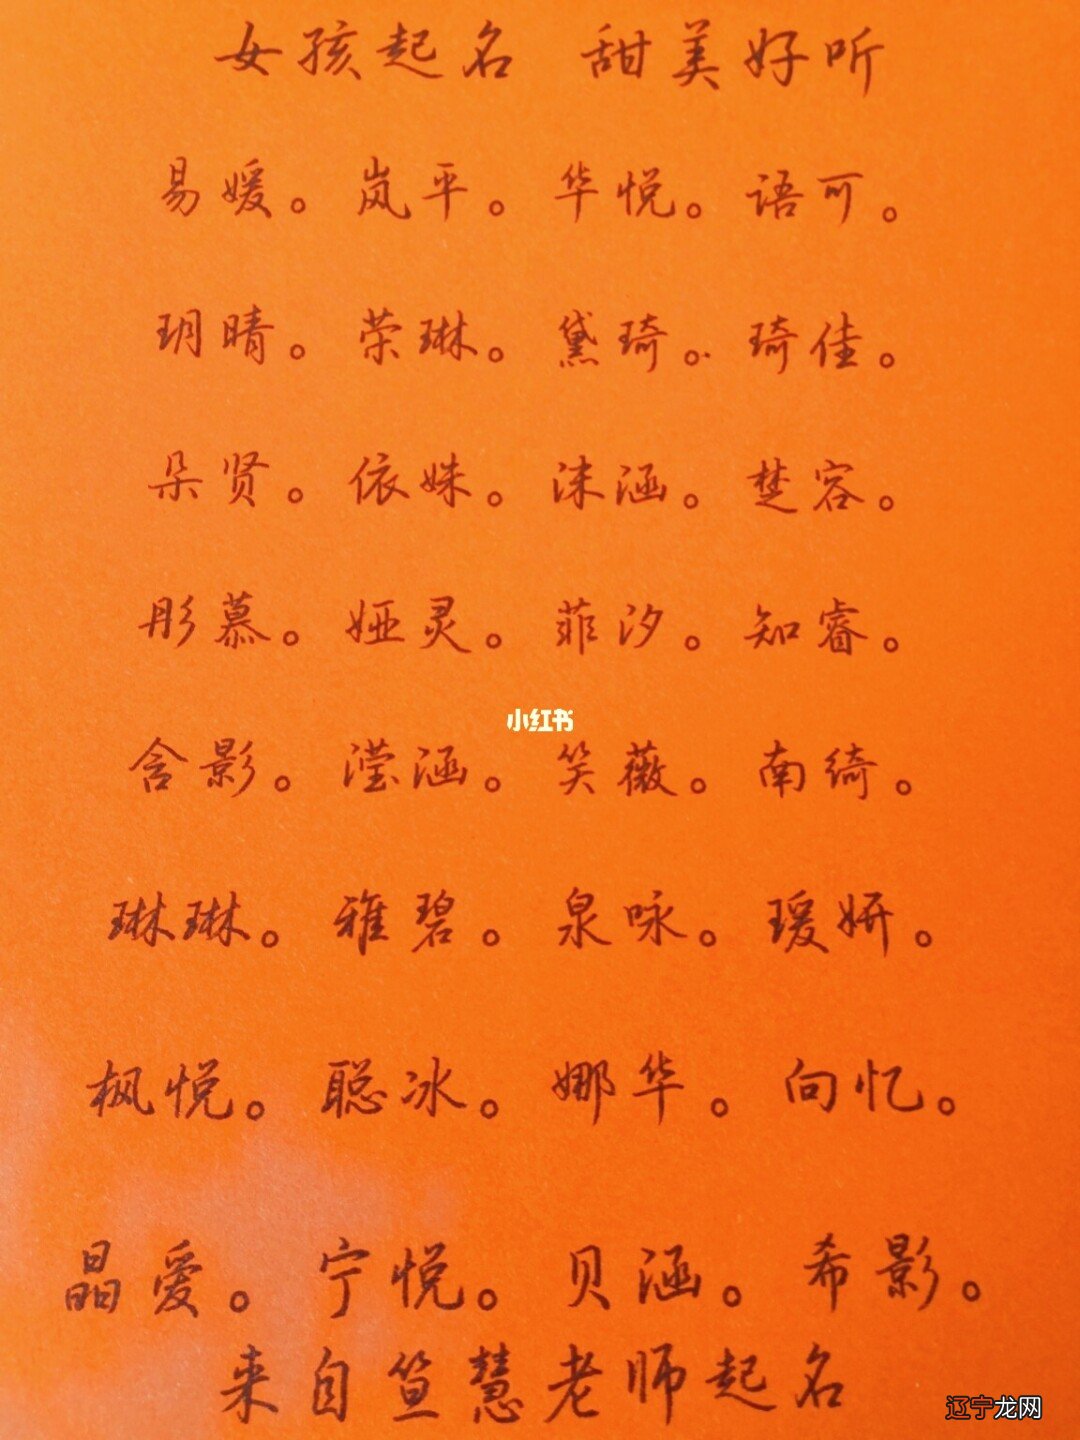 女孩起名 甜美好听
易媛。岚平。华悦。语可。
玥晴。荣琳。黛琦。琦佳。
朵贤。依姝。沫涵。楚容。
彤慕。娅灵。菲汐。知睿。
小红书
含影。滢涵。笑薇。南绮。
琳琳。雅碧。泉咏。瑷妍。
枫悦。聪冰。娜华。向忆。
晶爱。宁悦。贝涵。希影。
来自笪慧老师起名
辽宁龙网